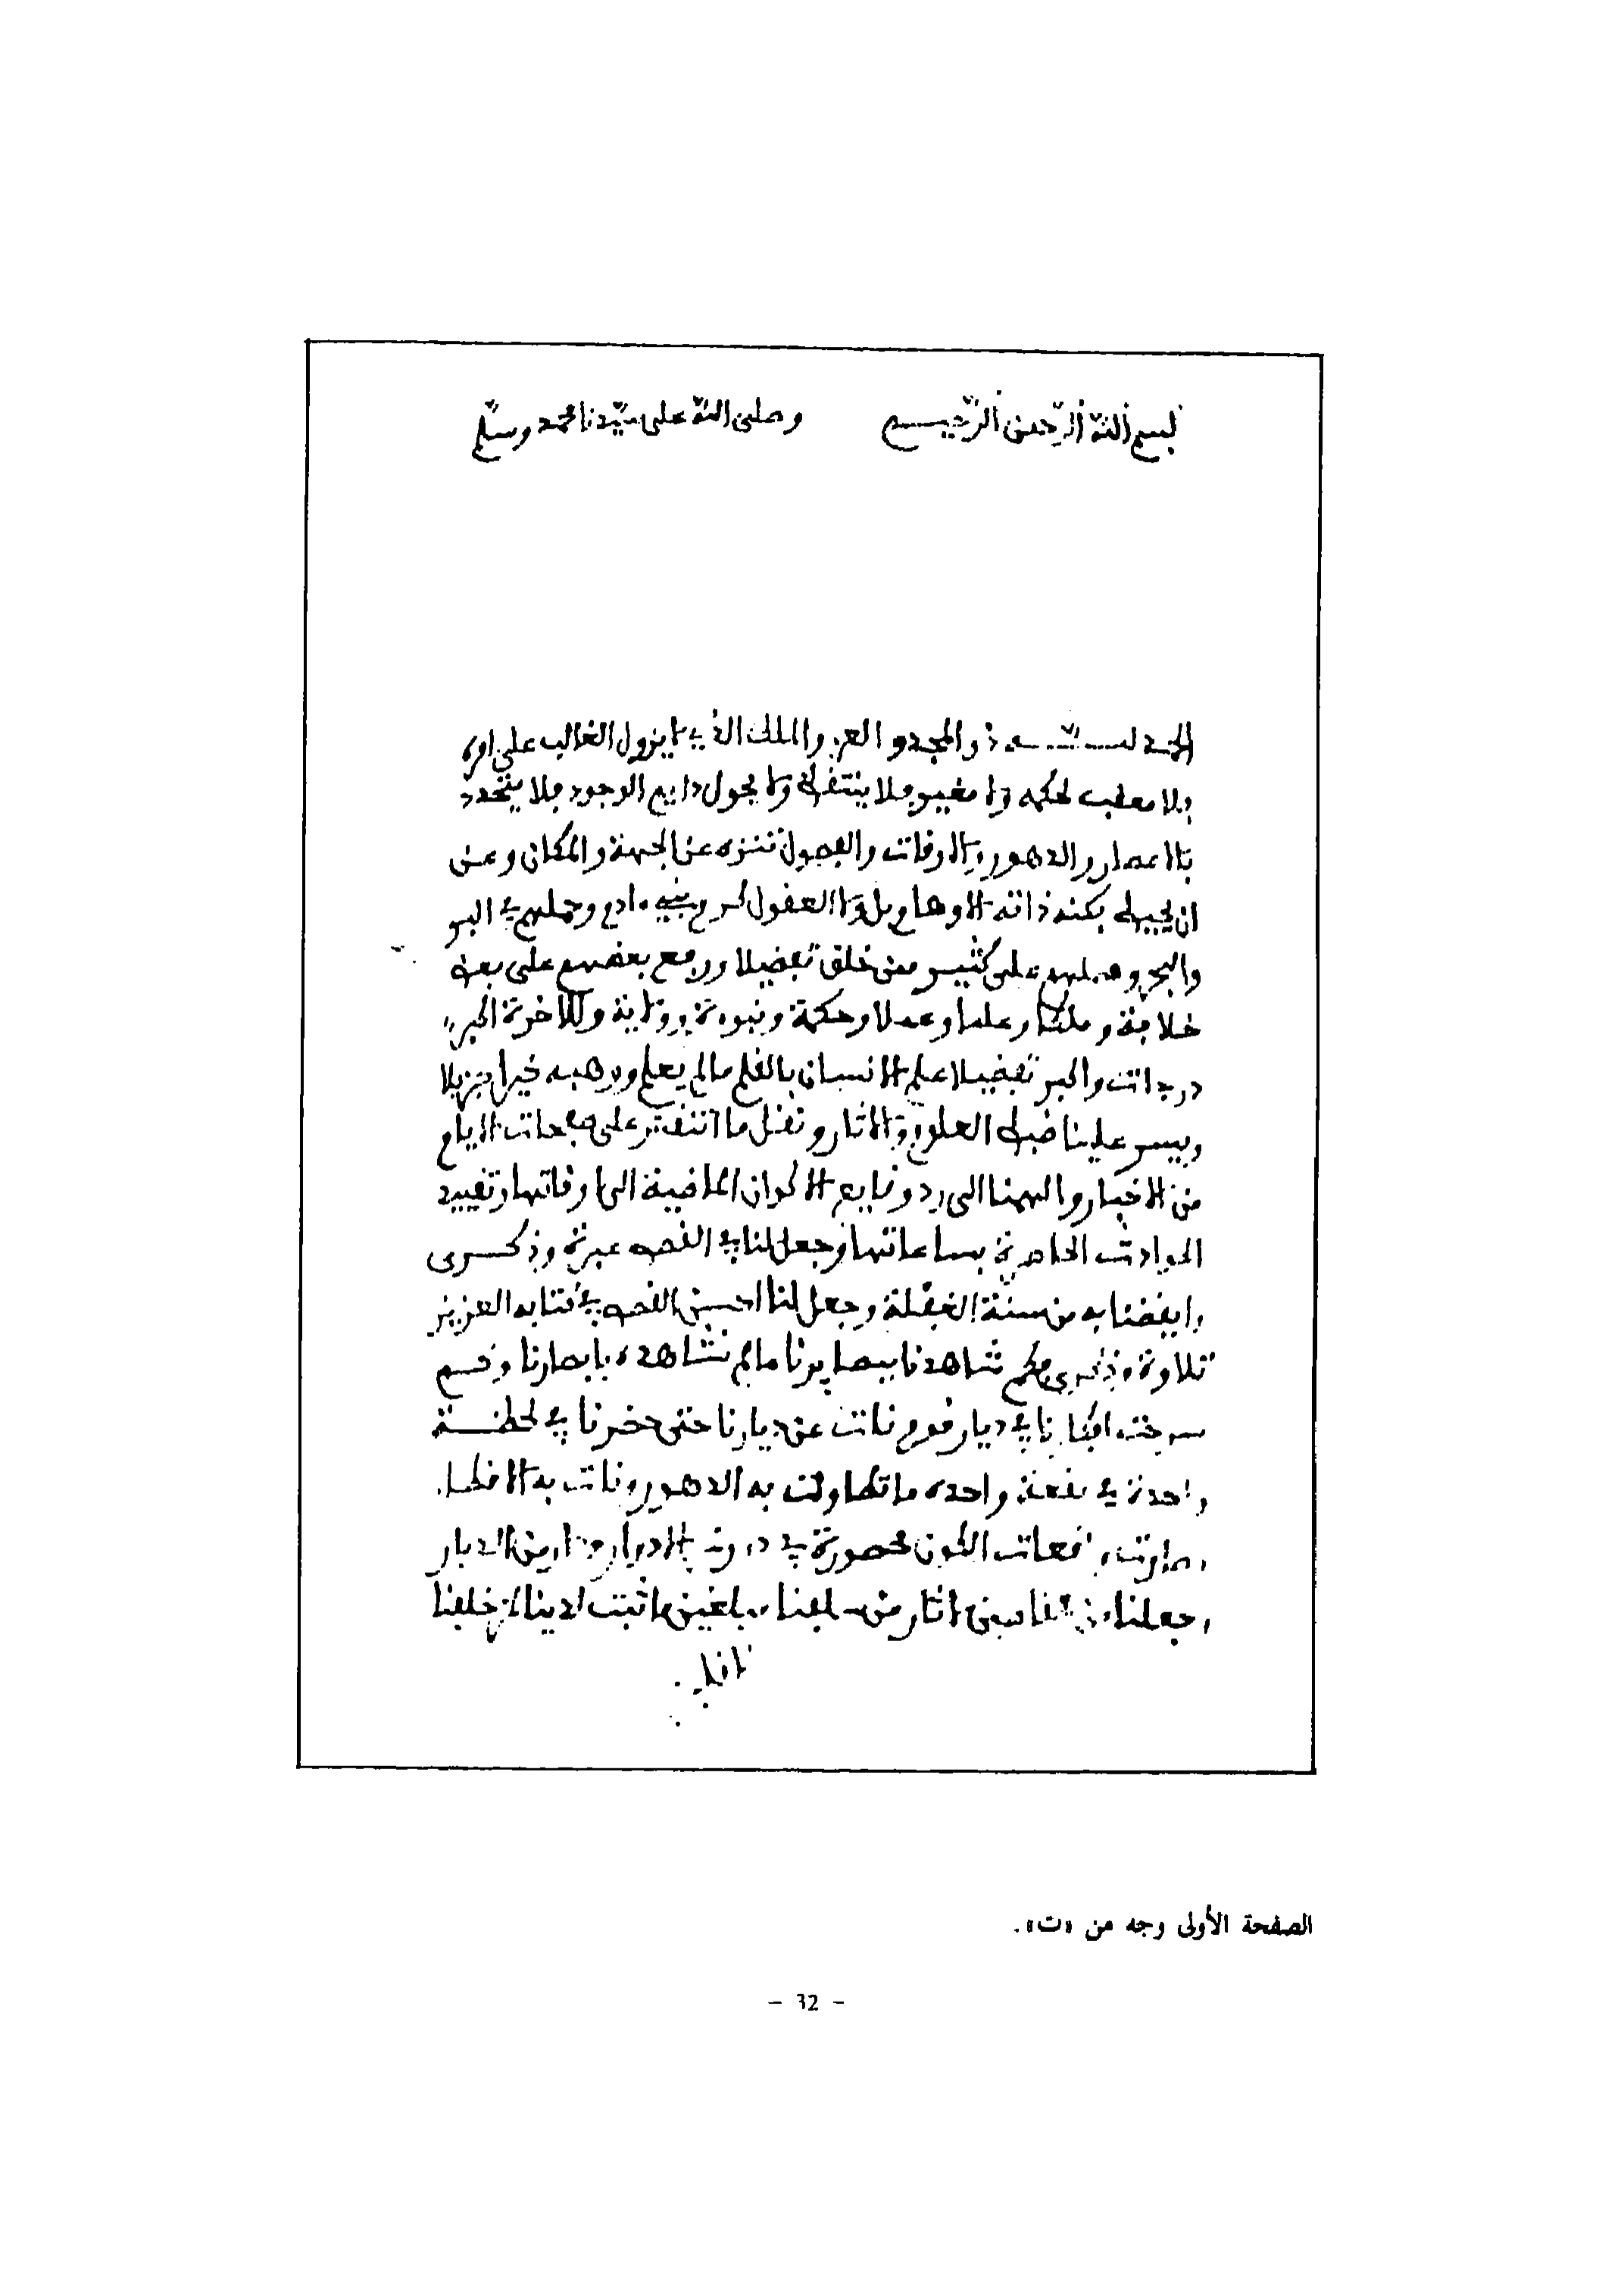 بسم الله الرحمن الرحيم وصلى الله على سيدنا محمد وسلم
الحمد لله ذو المجد والعز والملك الذي لا يزول الغالب على امره
فلا معقب لحكمه ولا مغير فلا ينتقل ولا يحول دايم الوجود فلا يتحدد
بالاعصار والدهور والاوقات والفصول تنزه عن الجهة والمكان وعن
ان يحيط بكنه ذاته الاوهام والعقول كرم بني ءادم وحملهم في البر
والبحر وفضلهم على كثير ممن خلق تفضيلا ورفع بعضهم على بعض
خلافة وملكا وعلما وعدلا وحكمة ونبوءة وولاية وللاخرة اكبر
درجات واكبر تفضيلا علم الانسان بالقلم ما لم يعلم ووهبه خيرا جزيلا
ويسر علينا ضبط العلوم والاثار ونقل ما انتقر على صفحات الايام
من الاخبار والهمنا الى رد وقايع الاكوان الماضية الى اوقاتها وتقييد
الحوادث الحاضرة بساعاتها وجعل لنا في القصص عبرة وذكرى
وايقضنا به من سنة الغفلة وجعل لنا احسن القصص في كتابه العزيز
تلاوة وذكرى فكم شاهدنا ببصايرنا ما لم نشاهده بابصارنا وكم
سرحت افكارنا في ديار قوم نات عن ديارنا حتى حضرنا في لحظة
واحدة في بقعة واحده ما تطاولت به الدهور ونات به الاقطار
وصارت بقعات الكون محصورة في
وجعلنا اثار من سلفنا لدينا خلفنا